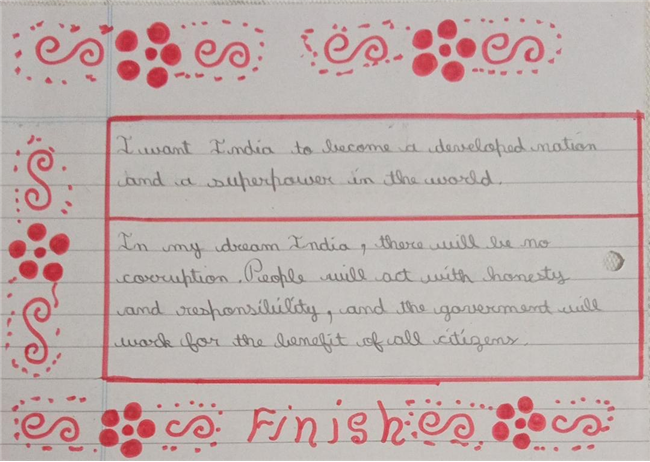 I want India to become a developed nation
and a superpower in the world.
In my dream India, there will be no
corruption. People will act with honesty
and responsibility, and the goverment will
work for the benefit of all citizens.
Finish